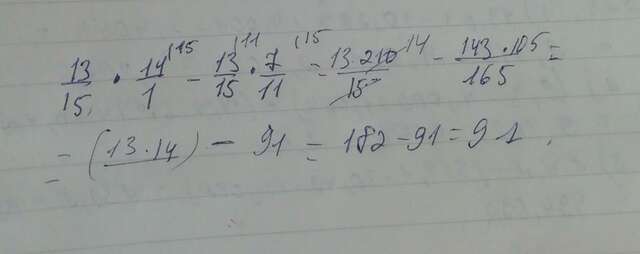 13/15 · 14/1 (15 - 13/15 (11 · 7/11 (15 = 13·210/15 14 - 143·105/165 =
= (13·14) - 91 = 182 - 91 = 91.